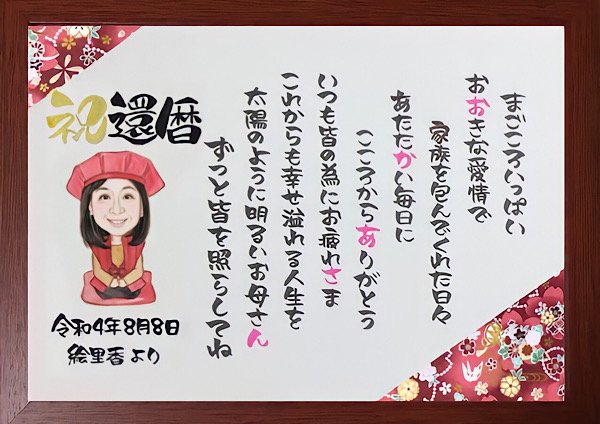 祝還暦
まごころいっぱい
おおきな愛情で
家族を包んでくれた日々
あたたかい毎日に
こころからありがとう
いつも皆の為にお疲れさま
これからも幸せ溢れる人生を
太陽のように明るいお母さん
ずっと皆を照らしてね
令和4年8月8日
絵里香より